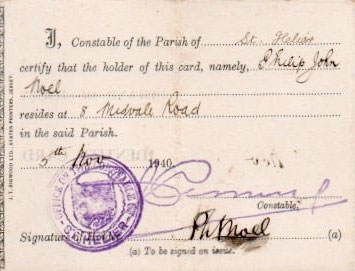 I, Constable of the Parish of St. Helier
certify that the holder of this card, namely, Philip John
Noel
resides at 8 Midvale Road
in the said Parish.
5th Nov 1940.
Constable,
Signature of Holder Ph Noel (a)
(a) To be signed on issue.
J. T. BIGWOOD LTD., STATES PRINTERS, JERSEY.